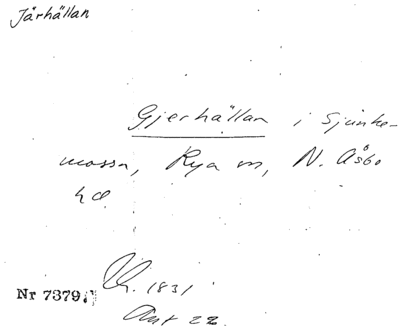 Järhällan
Gjerhällan i Sjunke-
mossa, Rya sn, N. Åsbo
hd
1831
Nr 7379. Akt 22